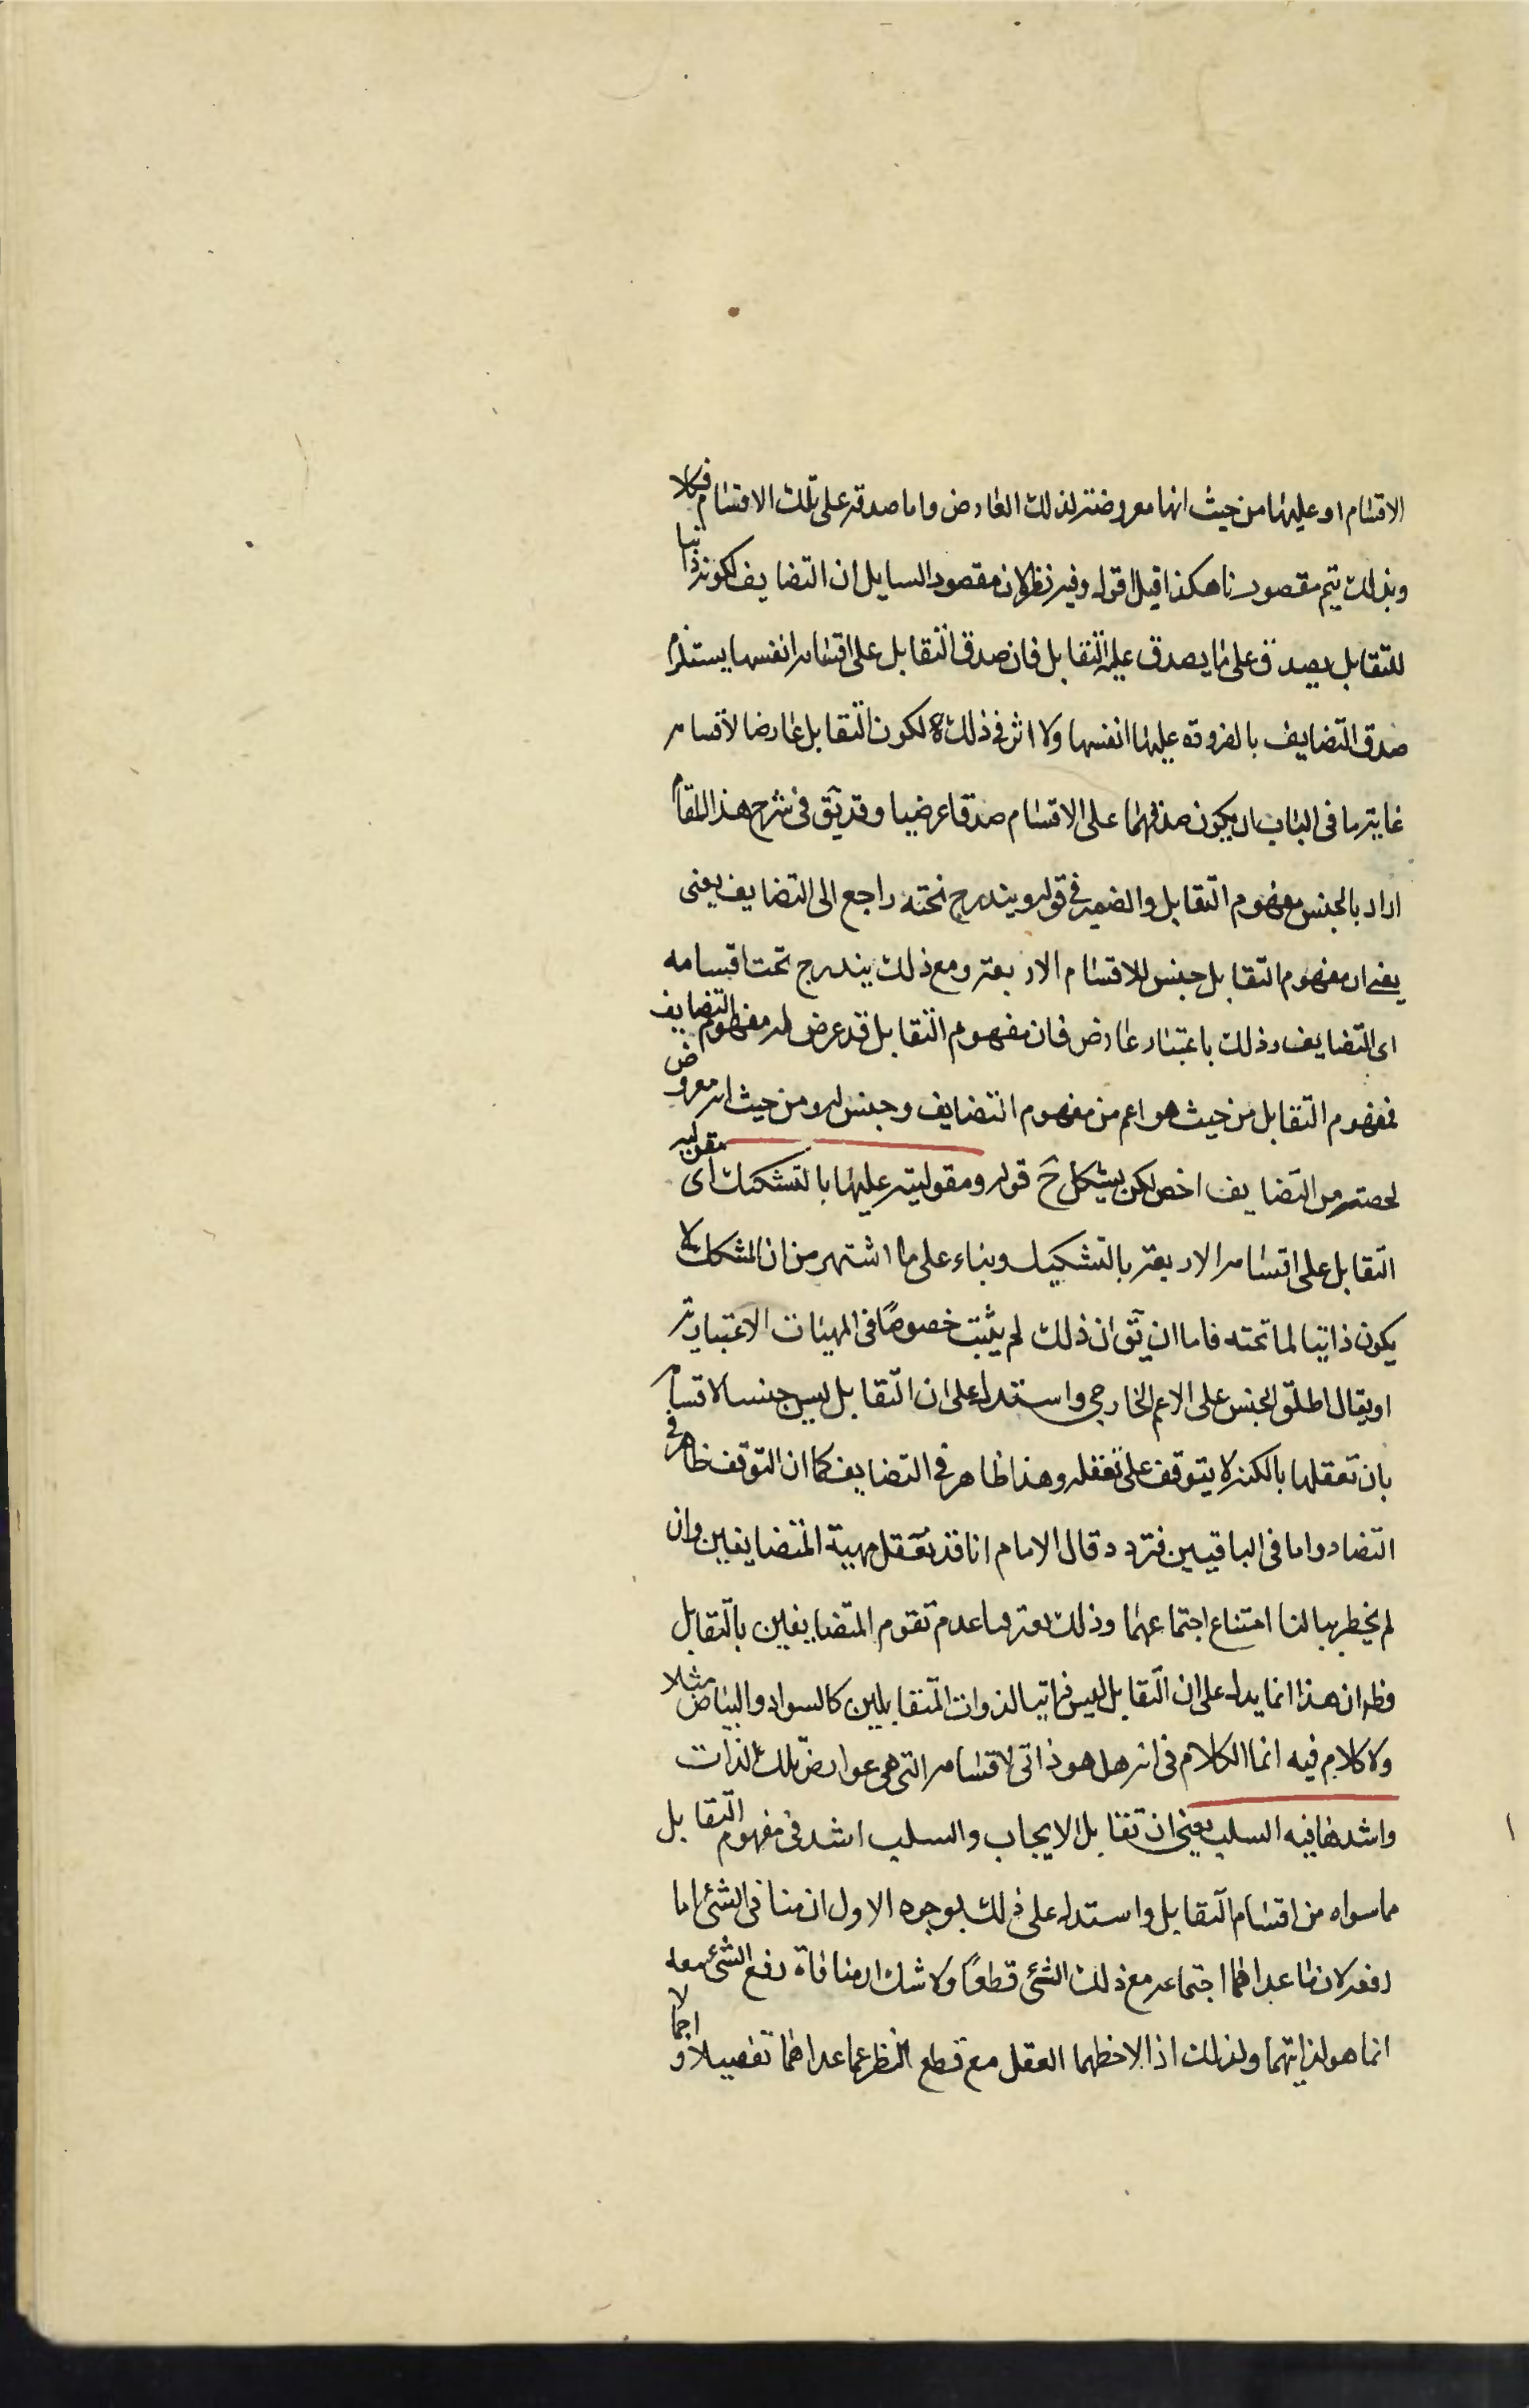 الاقسام او عليها من حيث انها معروضة لذلك العارض واما صدقه على تلك الاقسام فكلا
وبذلك يتم مقصودنا هكذا قيل اقول وفيه نظر لان مقصود السايل ان التضايف لكونه ذاتيا
للتقابل يصدق على ما يصدق عليه التقابل فان صدق التقابل على اقسامه انفسها يستلزم
صدق التضايف بالضرورة عليها انفسها ولا اثر في ذلك لكون التقابل عارضا لاقسامه
غاية ما في الباب ان يكون صدقهما على الاقسام صدقا عرضيا وقد يق في شرح هذا المقام
اراد بالجنس مفهوم التقابل والضمير في قوله ويندرج تحته راجع الى التضايف يعنى
يعنى ان مفهوم التقابل جنس للاقسام الاربعة ومع ذلك يندرج تحت اقسامه
اى التضايف وذلك باعتبار عارض فان مفهوم التقابل قد عرض له مفهوم التضايف
فمفهوم التقابل من حيث هو اعم من مفهوم التضايف وجنس له ومن حيث انه معروض
لحصة من التضايف اخص لكن يشكل ح قوله ومقوليته عليها بالتشكيك اى مقولية
التقابل على اقسامه الاربعة بالتشكيك وبناء على ما اشتهر من ان المشكك لا
يكون ذاتيا لما تحته فاما ان يق ان ذلك لم يثبت خصوصًا في المهيات الاعتبارية
او يقال اطلق الجنس على الاعم الخارجي واستدل على ان التقابل ليس جنسا لاقسامه
بان تعقلها بالكنه لا يتوقف على تعقله وهذا ظاهر في التضايف كما ان التوقف ظاهر في
التضاد واما في الباقيين فتردد قال الامام انا قد نعقل مهية المتضايفين وان
لم يخطر ببالنا امتناع اجتماعهما وذلك يعترف بعدم تقوم المتضايفين بالتقابل
وظ ان هذا انما يدل على ان التقابل ليس ذاتيا لذوات المتقابلين كالسواد والبياض مثلا
ولا كلام فيه انما الكلام في انه هل هو ذاتى لاقسامه التى هى عوارض تلك الذات
واشدها فيه السلب يعنى ان تقابل الايجاب والسلب اشد في مفهوم التقابل
مما سواه من اقسام التقابل واستدل على ذلك بوجوه الاول ان منافى الشئ اما
رفعه لان ما عداهما اجتماعه مع ذلك الشئ قطعًا ولا شك ان منافاة رفع الشئ معه
انما هو لذاتيهما ولذلك اذا لاحظهما العقل مع قطع النظر عما عداهما تفصيلا واجمالا